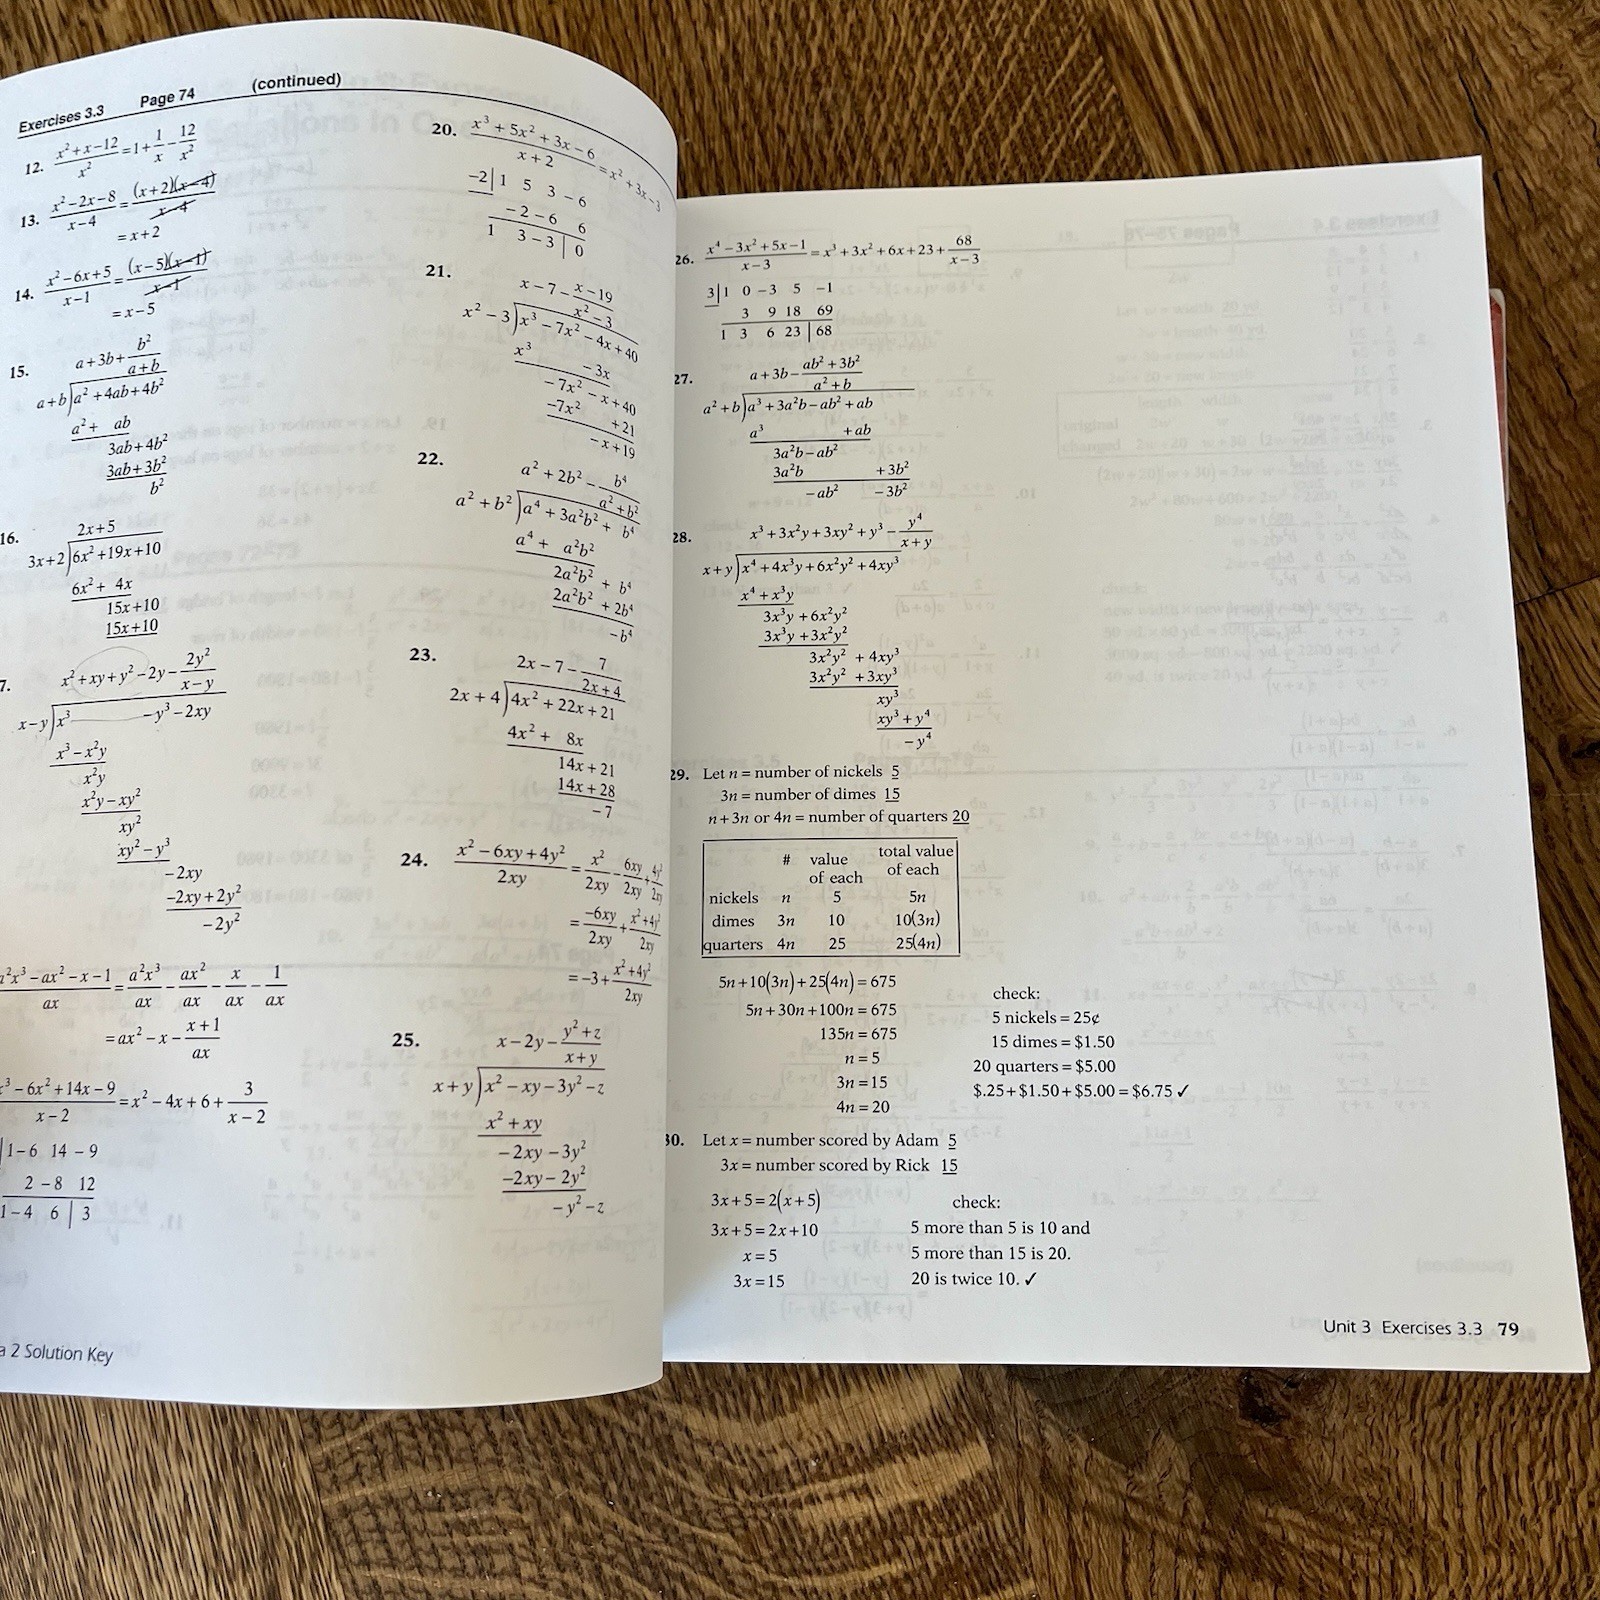 Exercises 3.3 Page 74 (continued)
12. (x²+x−12)/x² = 1 + 1/x − 12/x²
13. (x²−2x−8)/(x−4) = (x+2)(x−4)/(x−4)
= x+2
14. (x²−6x+5)/(x−1) = (x−5)(x−1)/(x−1)
= x−5
15. a+3b+ b²/(a+b)
a+b)a²+4ab+4b²
a²+ ab
3ab+4b²
3ab+3b²
b²
16. 2x+5
3x+2)6x²+19x+10
6x²+ 4x
15x+10
15x+10
7. x²+xy+y²−2y− 2y²/(x−y)
x−y)x³ −y³−2xy
x³−x²y
x²y
x²y−xy²
xy²
xy²−y³
−2xy
−2xy+2y²
−2y²
a²x³−ax²−x−1/ax = a²x³/ax − ax²/ax − x/ax − 1/ax
= ax²−x− (x+1)/ax
x³−6x²+14x−9/(x−2) = x²−4x+6+ 3/(x−2)
1−6 14 −9
2 −8 12
1−4 6 | 3
a 2 Solution Key
20. (x³+5x²+3x−6)/(x+2) = x²+3x−3
−2|1 5 3 −6
−2 −6 6
1 3 −3 | 0
21. x−7− (x−19)/(x²−3)
x²−3)x³−7x²−4x+40
x³ −3x
−7x² −x+40
−7x² +21
−x+19
22. a²+2b²− b⁴/(a²+b²)
a²+b²)a⁴+3a²b²+ b⁴
a⁴+ a²b²
2a²b² + b⁴
2a²b² + 2b⁴
−b⁴
23. 2x−7− 7/(2x+4)
2x+4)4x²+22x+21
4x²+ 8x
14x+21
14x+28
−7
24. (x²−6xy+4y²)/2xy = x²/2xy − 6xy/2xy + 4y²/2xy
= −6xy/2xy + (x²+4y²)/2xy
= −3+ (x²+4y²)/2xy
25. x−2y− (y²+z)/(x+y)
x+y)x²−xy−3y²−z
x²+xy
−2xy−3y²
−2xy−2y²
−y²−z
26. (x⁴−3x²+5x−1)/(x−3) = x³+3x²+6x+23+ 68/(x−3)
3|1 0 −3 5 −1
3 9 18 69
1 3 6 23 | 68
27. a+3b− (ab²+3b²)/(a²+b)
a²+b)a³+3a²b−ab²+ab
a³ +ab
3a²b−ab²
3a²b +3b²
−ab² −3b²
28. x³+3x²y+3xy²+y³− y⁴/(x+y)
x+y)x⁴+4x³y+6x²y²+4xy³
x⁴+x³y
3x³y+6x²y²
3x³y+3x²y²
3x²y² +4xy³
3x²y² +3xy³
xy³
xy³+y⁴
−y⁴
29. Let n = number of nickels 5
3n = number of dimes 15
n+3n or 4n = number of quarters 20
# value of each total value of each
nickels n 5 5n
dimes 3n 10 10(3n)
quarters 4n 25 25(4n)
5n+10(3n)+25(4n)=675
5n+30n+100n=675
135n=675
n=5
3n=15
4n=20
check:
5 nickels = 25¢
15 dimes = $1.50
20 quarters = $5.00
$.25+$1.50+$5.00=$6.75 ✓
30. Let x = number scored by Adam 5
3x = number scored by Rick 15
3x+5=2(x+5)
3x+5=2x+10
x=5
3x=15
check:
5 more than 5 is 10 and
5 more than 15 is 20.
20 is twice 10. ✓
Unit 3 Exercises 3.3 79